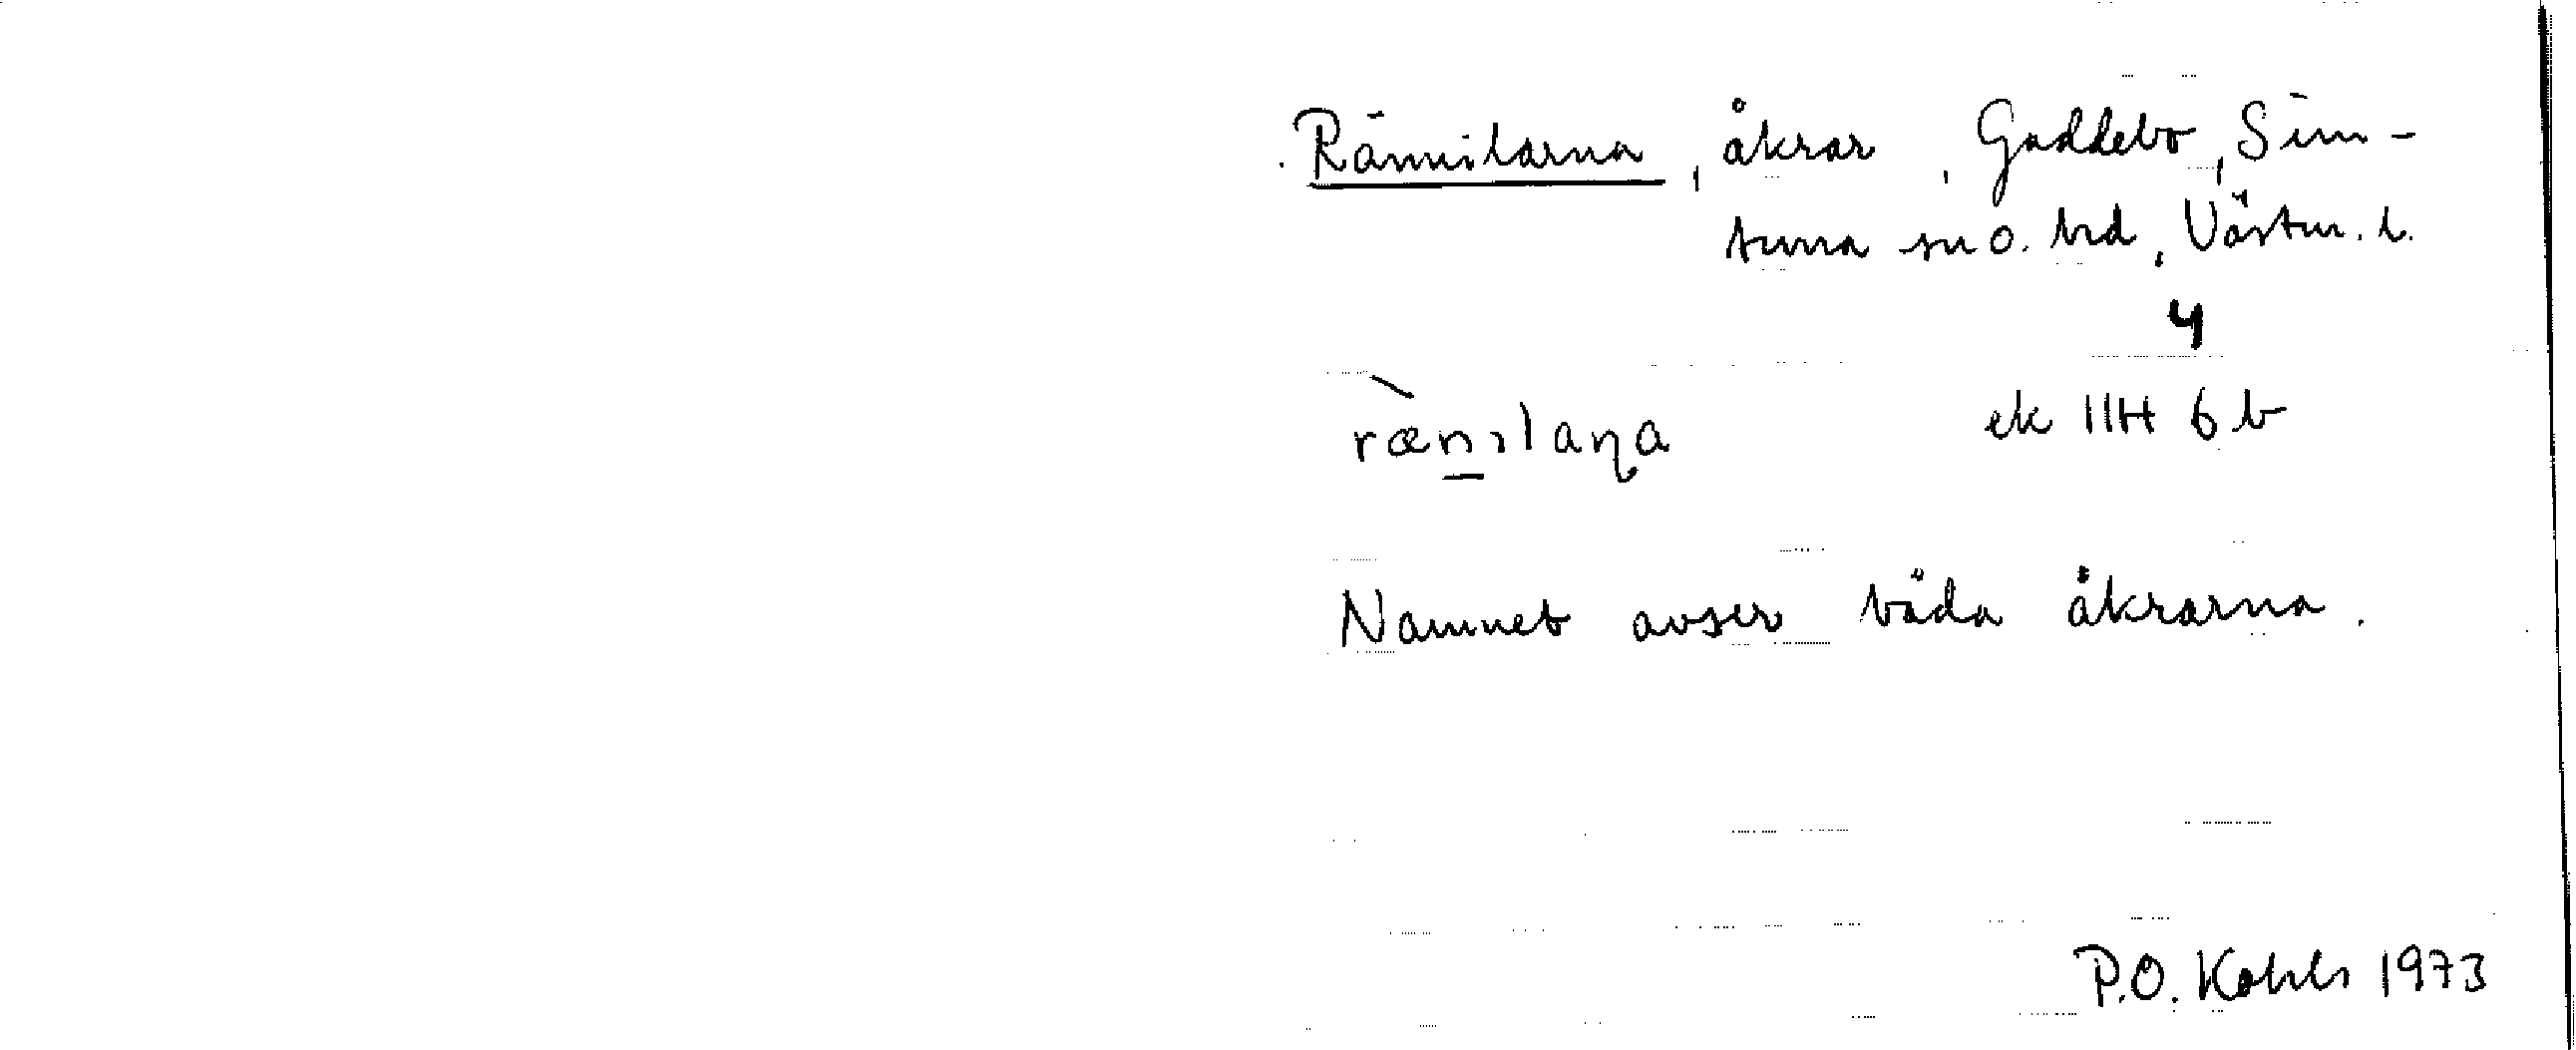 Rännilarna, åkrar, Gaddebo, Sim-
tuna sn o. hd, Västm. l.
4
rænılaɳa
ek 11H 6b
Namnet avser båda åkrarna.
P.O. Kohls 1973